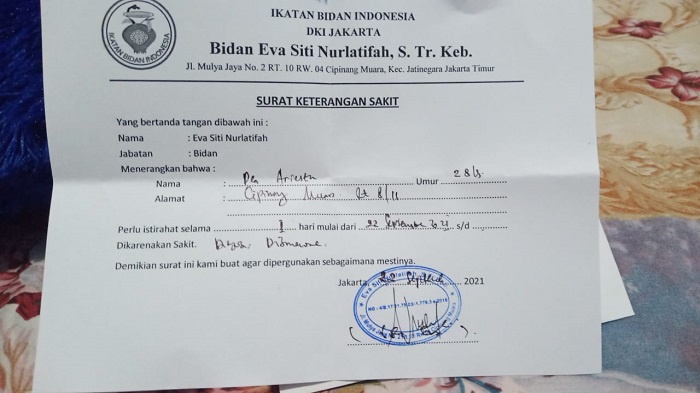 IKATAN BIDAN INDONESIA
DKI JAKARTA
Bidan Eva Siti Nurlatifah, S. Tr. Keb.
Jl. Mulya Jaya No. 2 RT. 10 RW. 04 Cipinang Muara, Kec. Jatinegara Jakarta Timur
IKATAN BIDAN INDONESIA
SURAT KETERANGAN SAKIT
Yang bertanda tangan dibawah ini :
Nama : Eva Siti Nurlatifah
Jabatan : Bidan
Menerangkan bahwa :
Nama : Umur 28
Alamat : Cipinang Muara Rt 8/11
Perlu istirahat selama 1 hari mulai dari 22 s/d
Dikarenakan Sakit.
Demikian surat ini kami buat agar dipergunakan sebagaimana mestinya.
Jakarta, 2021